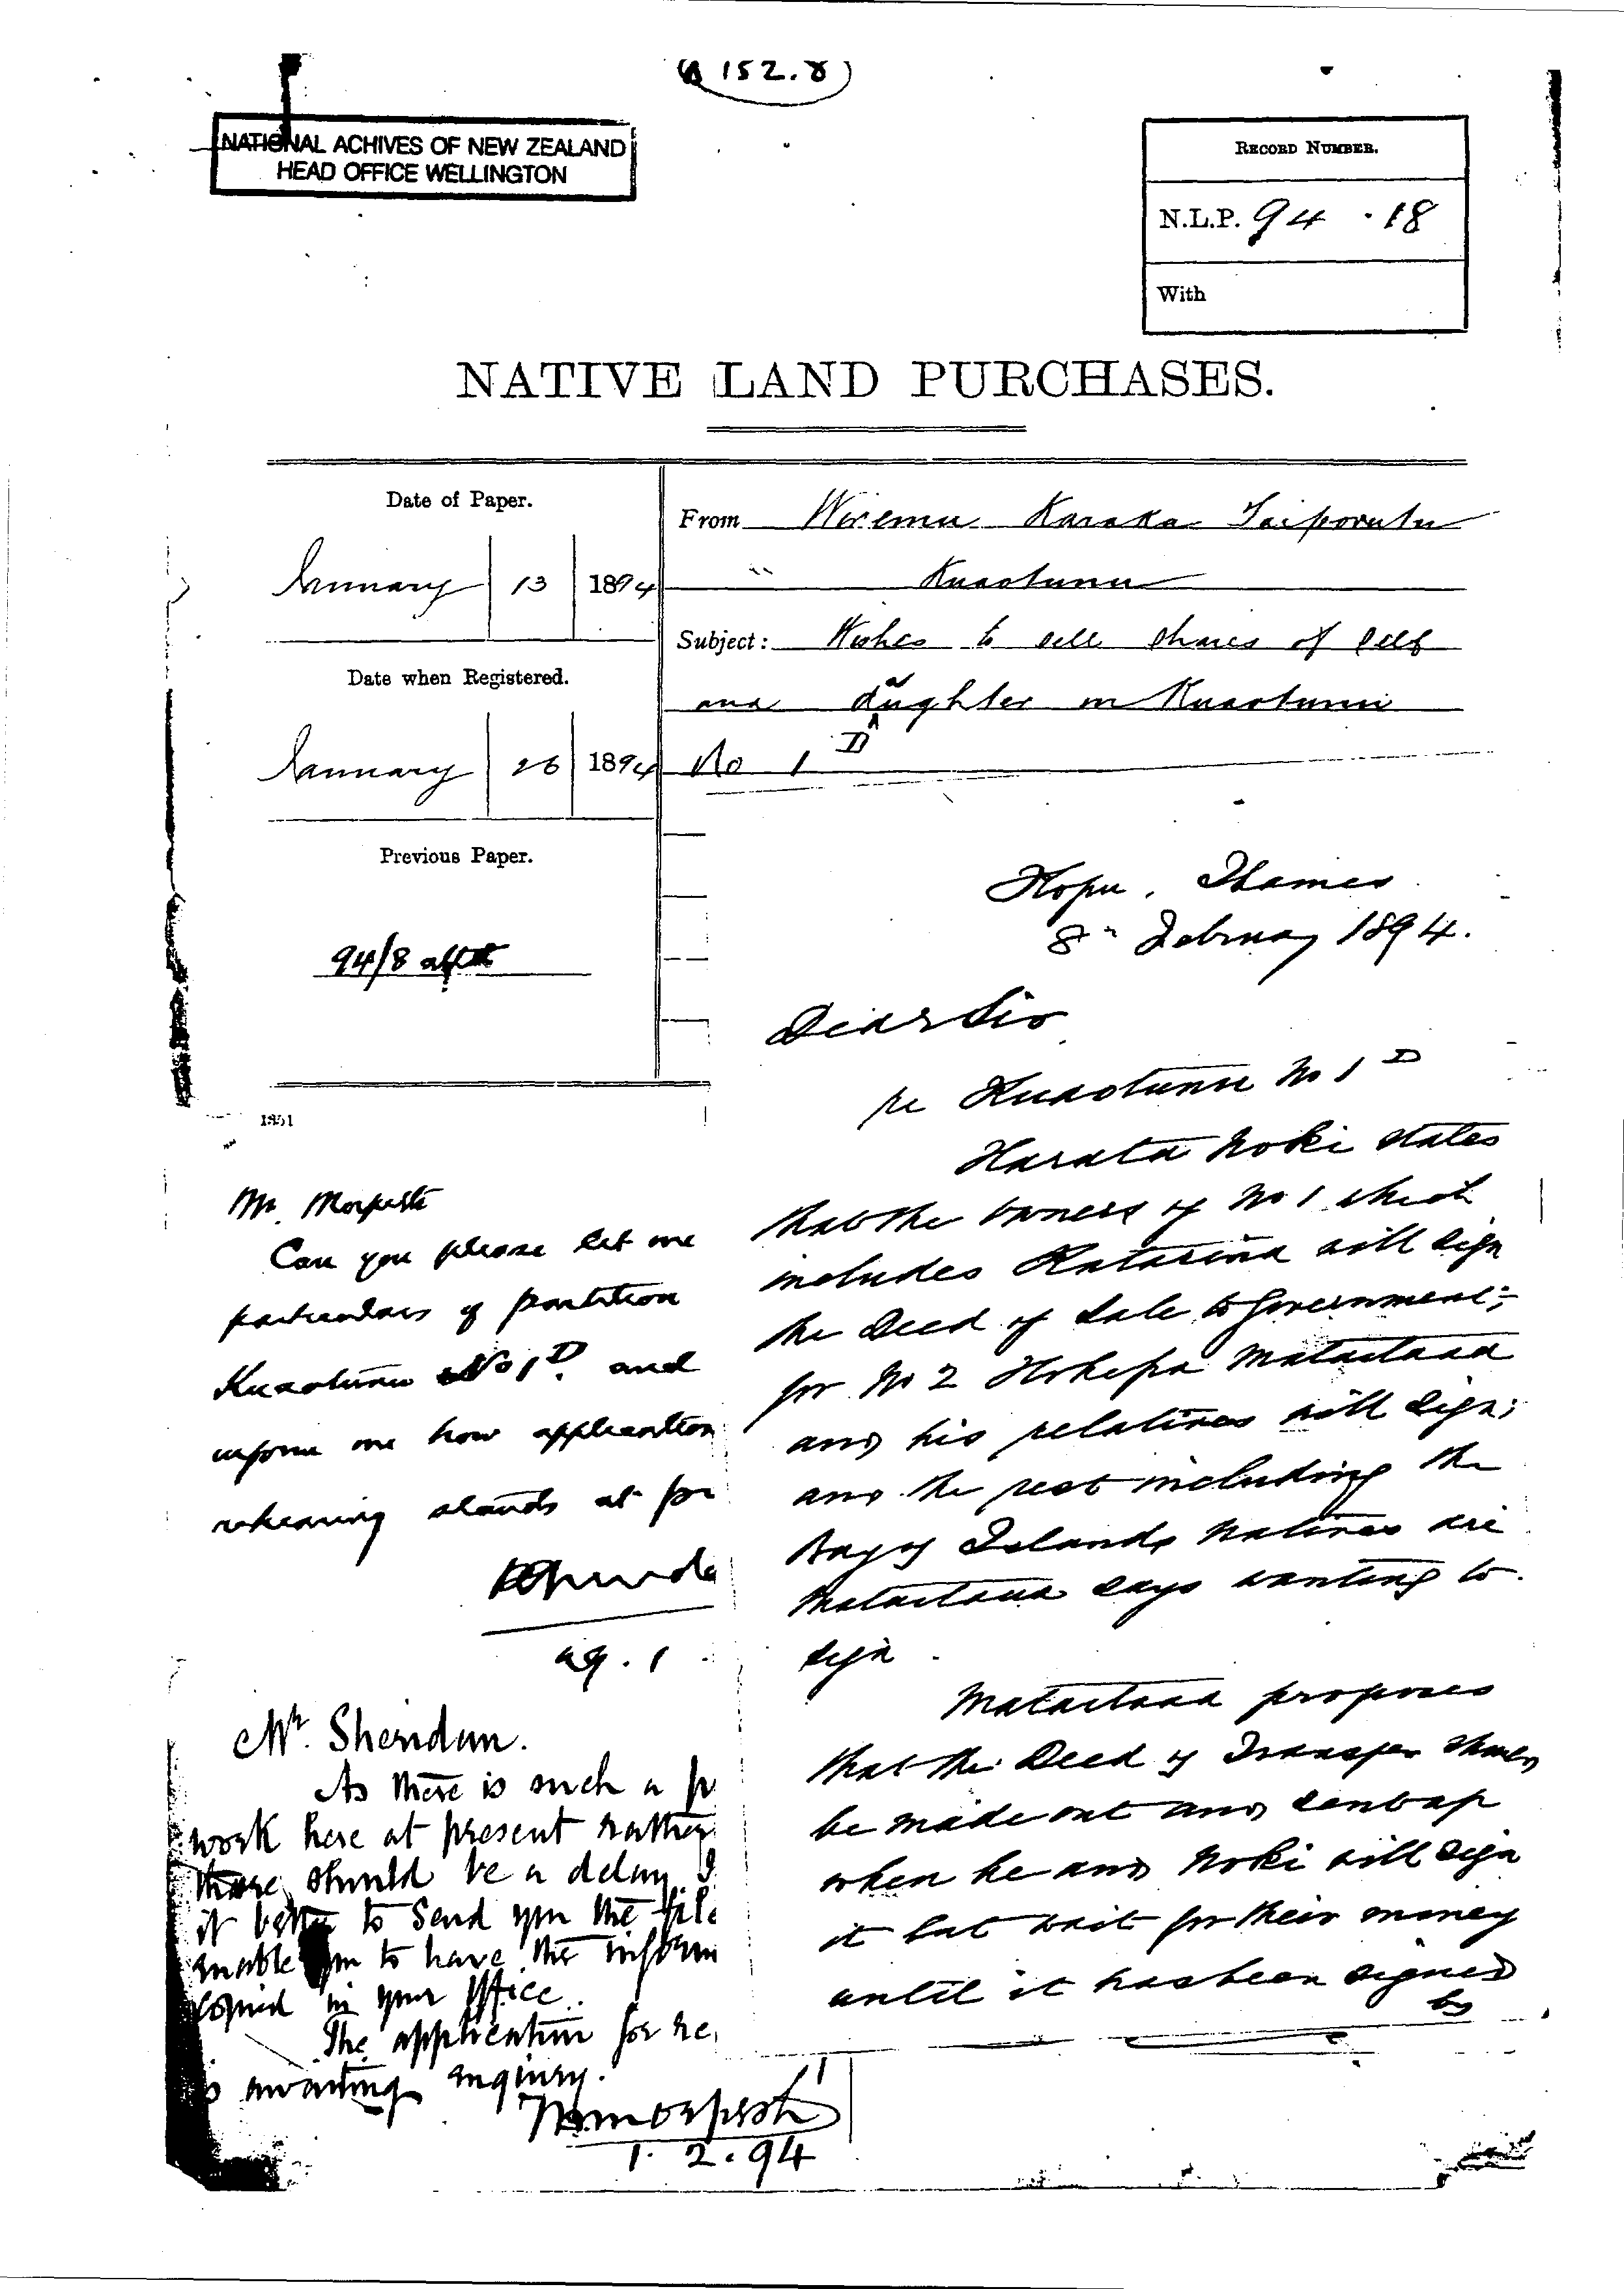 152.8
NATIONAL ACHIVES OF NEW ZEALAND
HEAD OFFICE WELLINGTON
RECORD NUMBER.
N.L.P. 94 . 18
With
NATIVE LAND PURCHASES.
Date of Paper.
January 13 1894
Date when Registered.
January 26 1894
Previous Paper.
94/8
From Wiremu Karaka Taiporutu
" Kuaotunu
Subject: Wishes to sell shares of self
and daughter in Kuaotunu
No 1 D
1351
Mr. Morpeth
Can you please let me
particulars of partition
Kuaotunu No 1D. and
inform me how application
rehearing stands at
29.1
Mr. Sheridan.
As there is such a
work here at present rather
there should be a delay I
it better to send you the file
enable you to have the inform
copied in your office.
The application for re
is awaiting inquiry.
Morpeth
1.2.94
Kopu, Thames
8th February 1894.
Dear Sir
re Kuaotunu No 1 D
Harata Noki states
that the owners of No 1 which
includes Katarina will sign
the Deed of Sale to Government;
for No 2 Hohepa Mataitaua
and his relatives will sign;
and the rest including the
Bay of Islands Natives are
Mataitaua says wanting to
sign.
Mataitaua proposes
that the Deed of Transfer should
be made out and sent up
when he and Noki will sign
it but wait for their money
until it has been signed
by